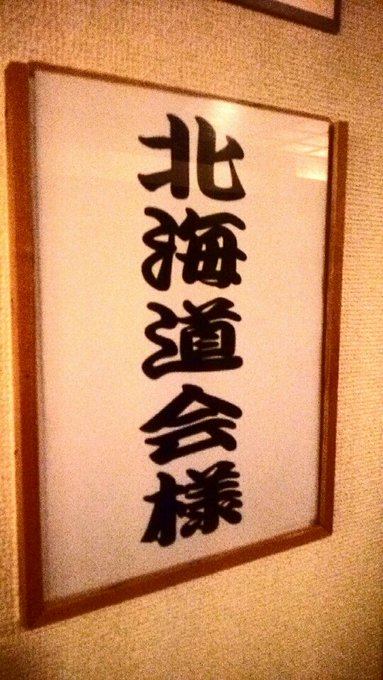 北海道会様